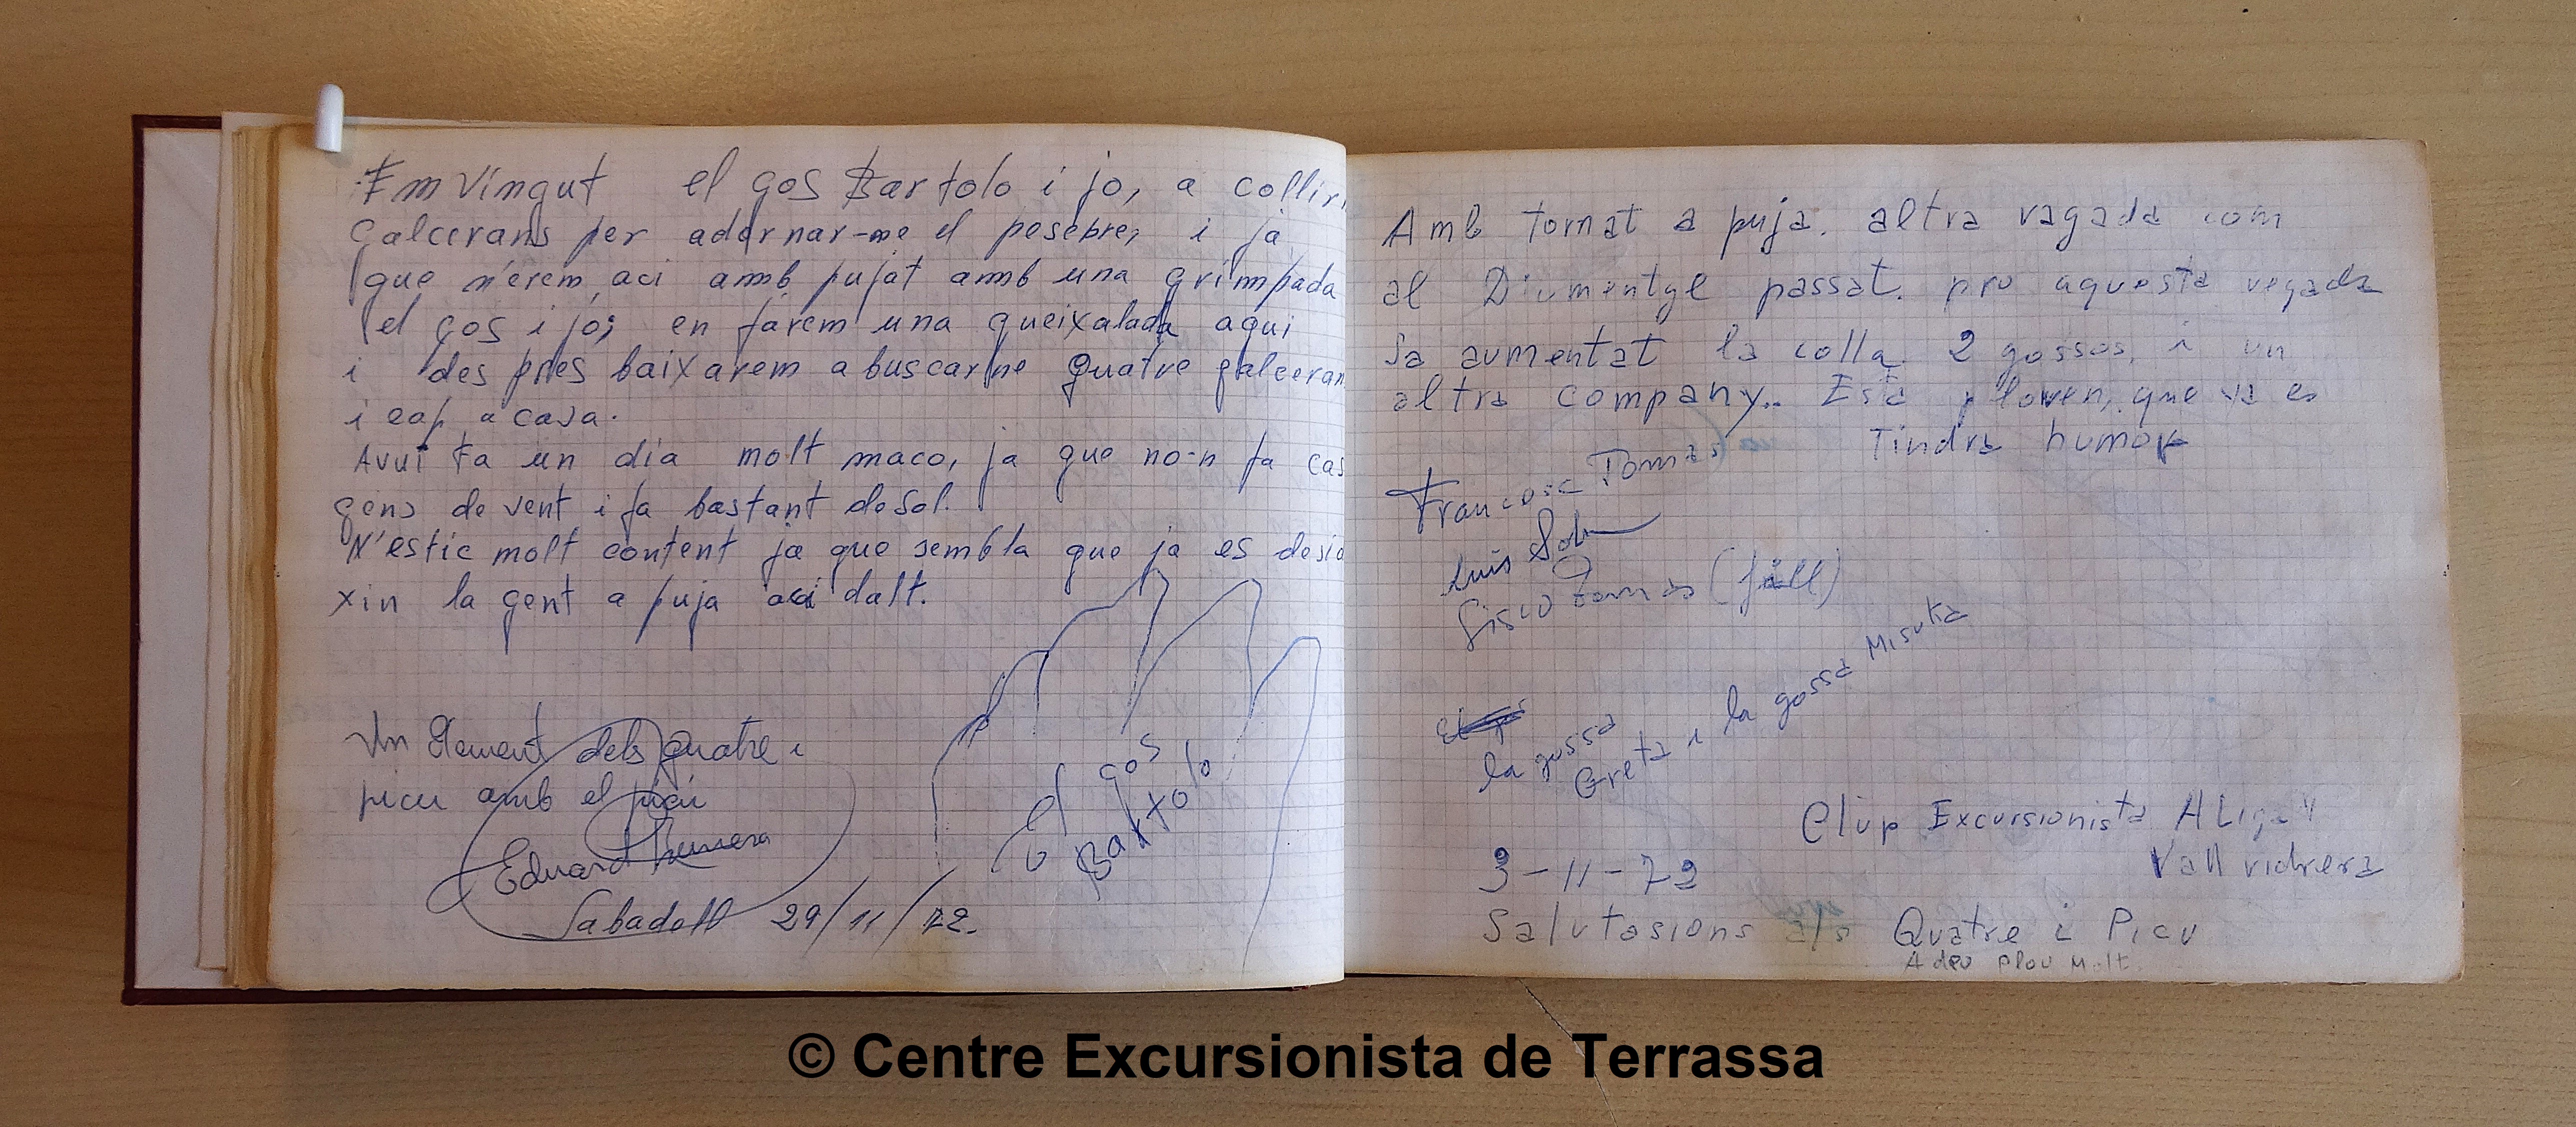 Em vingut el gos Bartolo i jo, a collir
galcerans per adornar-me el pesebre, i ja
que n'erem aci amb pujat amb una grimpada
el gos i jo; en farem una queixalada aqui
i des pres baixarem a buscarne quatre galceran
i cap a casa.
Avui fa un dia molt maco, ja que no-n fa cas
gens de vent i fa bastant de Sol.
N'estic molt content ja que sembla que ja es desid
xin la gent a puja aci dalt.
Un Element dels quatre i
picu amb el picu
Eduard
Sabadell 29/11/72.
el gos
Bartolo
Amb tornat a puja. altra vagada com
al Diumentge passat. pro aquesta vegada
sa aumentat la colla 2 gossos, i un
altra company.. Està plowen, que va es
Tindra humor
Francesc Tomas
Luis
Sisco Tomas (fill)
la gossa
Greta i la gossa Misuka
Clup Excursionista ALiga
Vallvidrera
3-11-72
Salutasions als Quatre i Picu
Adeu plou Molt
© Centre Excursionista de Terrassa